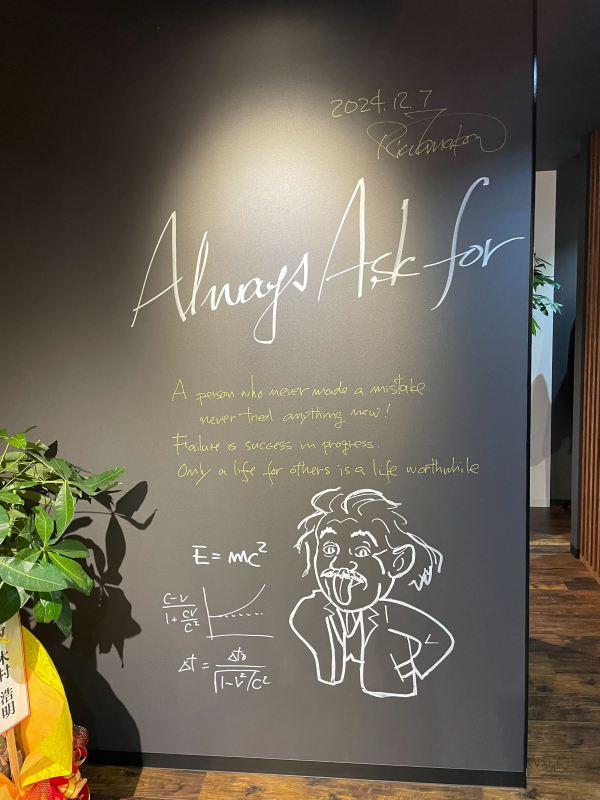 2024.12.7
Always Ask for
A person who never made a mistake
never tried anything new!
Failure is success in progress.
Only a life for others is a life worthwhile
E=mc²
C-V
1+CV/C²
Δt = Δt₀/√1-v²/c²
木村
浩明